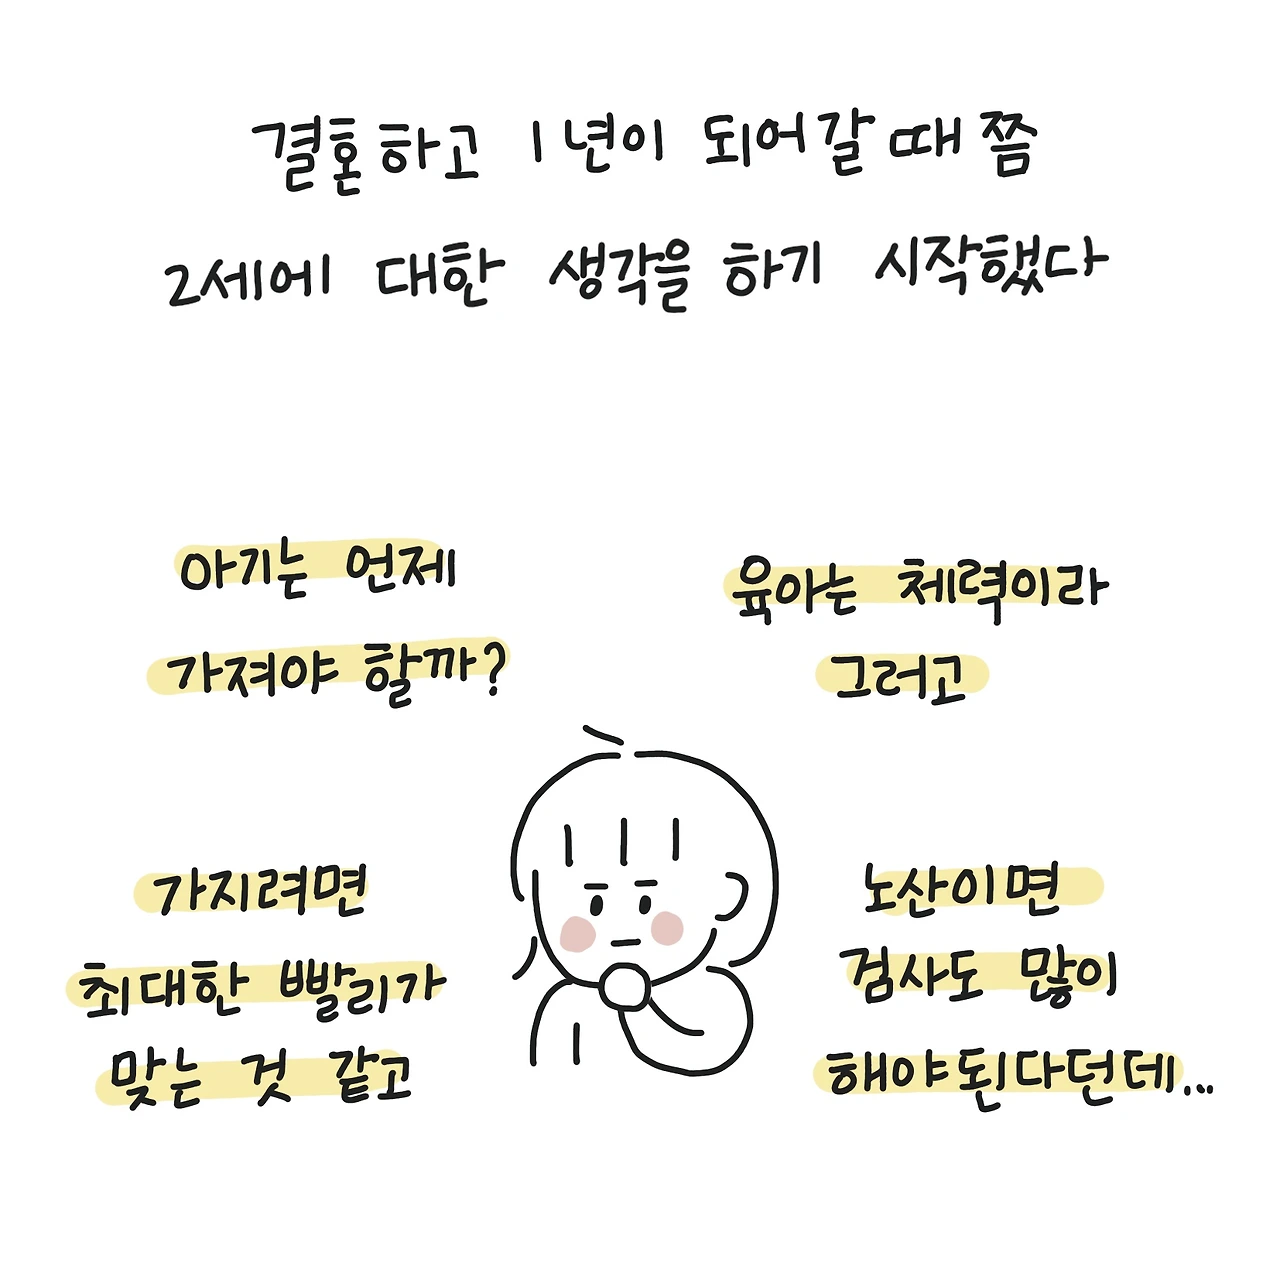 결혼하고 1년이 되어갈 때쯤
2세에 대한 생각을 하기 시작했다
아기는 언제
가져야 할까?
육아는 체력이라
그러고
가지려면
최대한 빨리가
맞는 것 같고
노산이면
검사도 많이
해야된다던데...